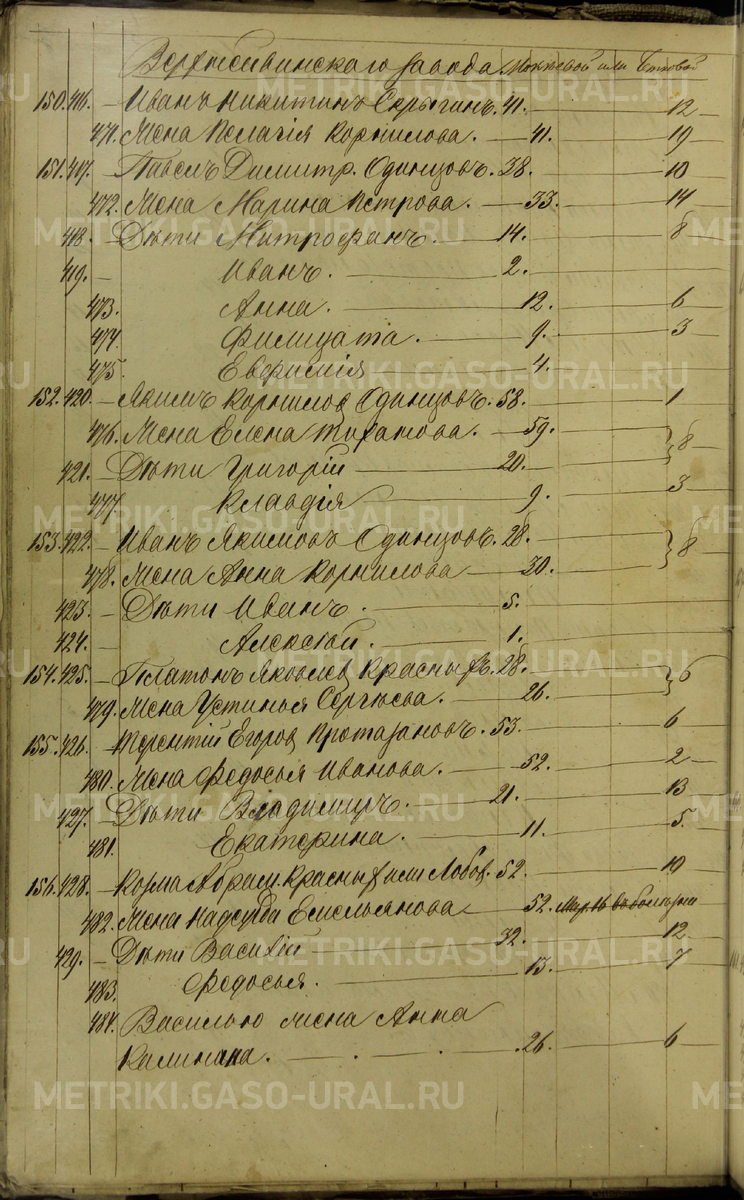 Верхнесинвинскаго завода
150. 416. — Иванъ Никитинъ Серыгинъ. 41. — 12
471. Жена Пелагія Корнилова. — 41. — 19
151. 417. — Павелъ Димитр. Одинцовъ. 38. — 10
472. Жена Марина Петрова. — 33. — 14
418. — Дѣти Митрофанъ. — 14. — 8
419. — Иванъ. — 2.
473. Анна. — 12. — 6
474. Филицата. — 9. — 3
475. Евфимія — 4.
152. 420. — Якимъ Корнилов Одинцовъ. 58. — 1
476. Жена Елена — 59. } 8
421. — Дѣти Григорій — 20.
477. Клавдія — 9. — 3
153. 422. — Иванъ Якимовъ Одинцовъ. 28. } 8
478. Жена Анна Корнилова — 30.
423. — Дѣти Иванъ. — 5.
424. — Алексѣй. — 1.
154. 425. — Платонъ Яковлев Красныхъ. 28. } 6
479. Жена Устинья Сергѣева. — 26.
155. 426. — Терентій Егоров Протазановъ. 53. — 6
480. Жена Федосья Иванова. — 52. — 2
427. — Дѣти Владимиръ. — 21. — 13
481. Екатерина. — 11. — 5.
156. 428. — Козма Абрам. Красных или Лобов. 52. — 10
482. Жена Надежда Емельянова — 52.
429. — Дѣти Василій 32. — 12
483. Федосья. — 13. — 7
484. Василью жена Анна
Калинина. — 26. — 6
METRIKI.GASO-URAL.RU